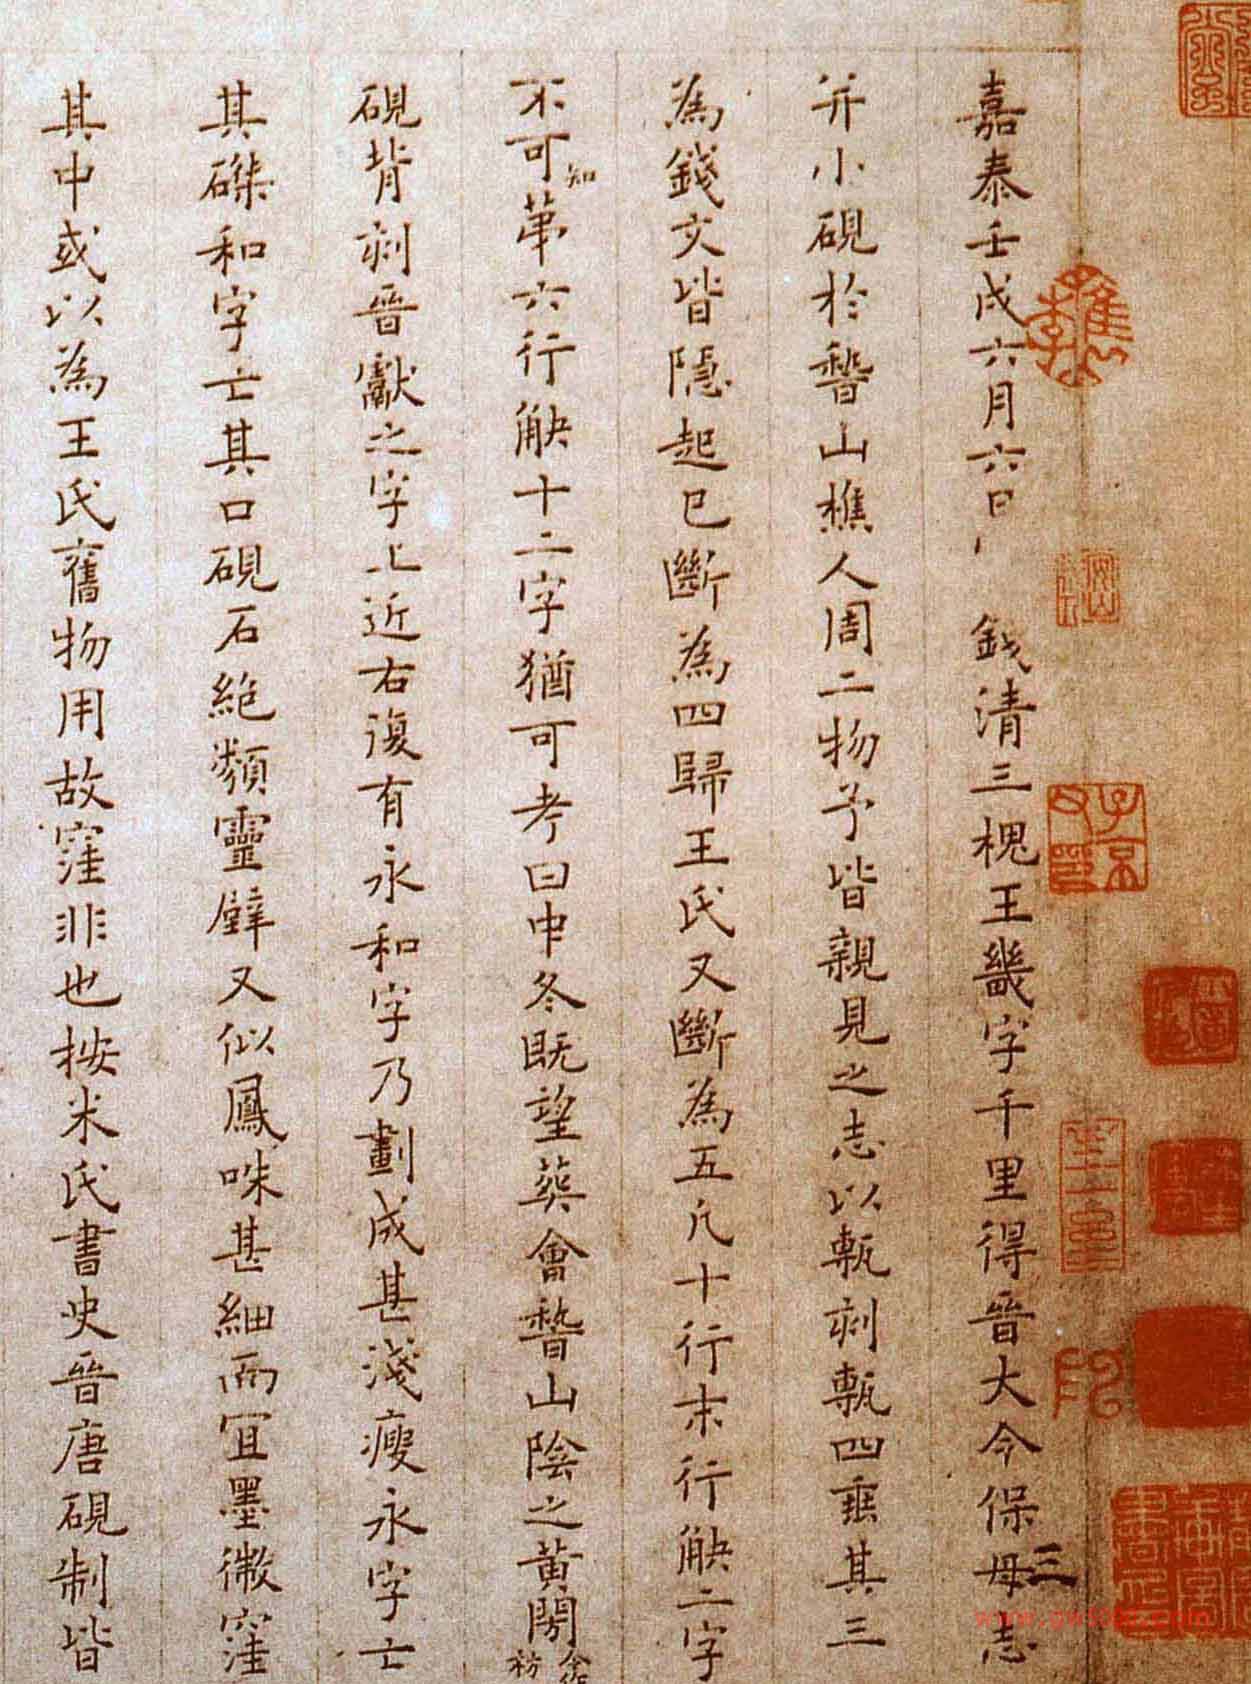 嘉泰壬戌六月六日 錢清三槐王畿字千里得晉大令保母志
三
并小硯於稽山樵人周二物予皆親見之志以甎刻甎四垂其三
為錢文皆隱起已斷為四歸王氏又斷為五凡十行末行缺二字
不可知第六行缺十二字猶可考曰中冬既望葬會稽山陰之黃閍
硯背刻晉獻之字上近右復有永和字乃劃成甚淺瘦永字亡
其磔和字亡其口硯石絕類靈璧又似鳳咮甚細而宜墨微窪
其中或以為王氏舊物用故窪非也按米氏書史晉唐硯制皆